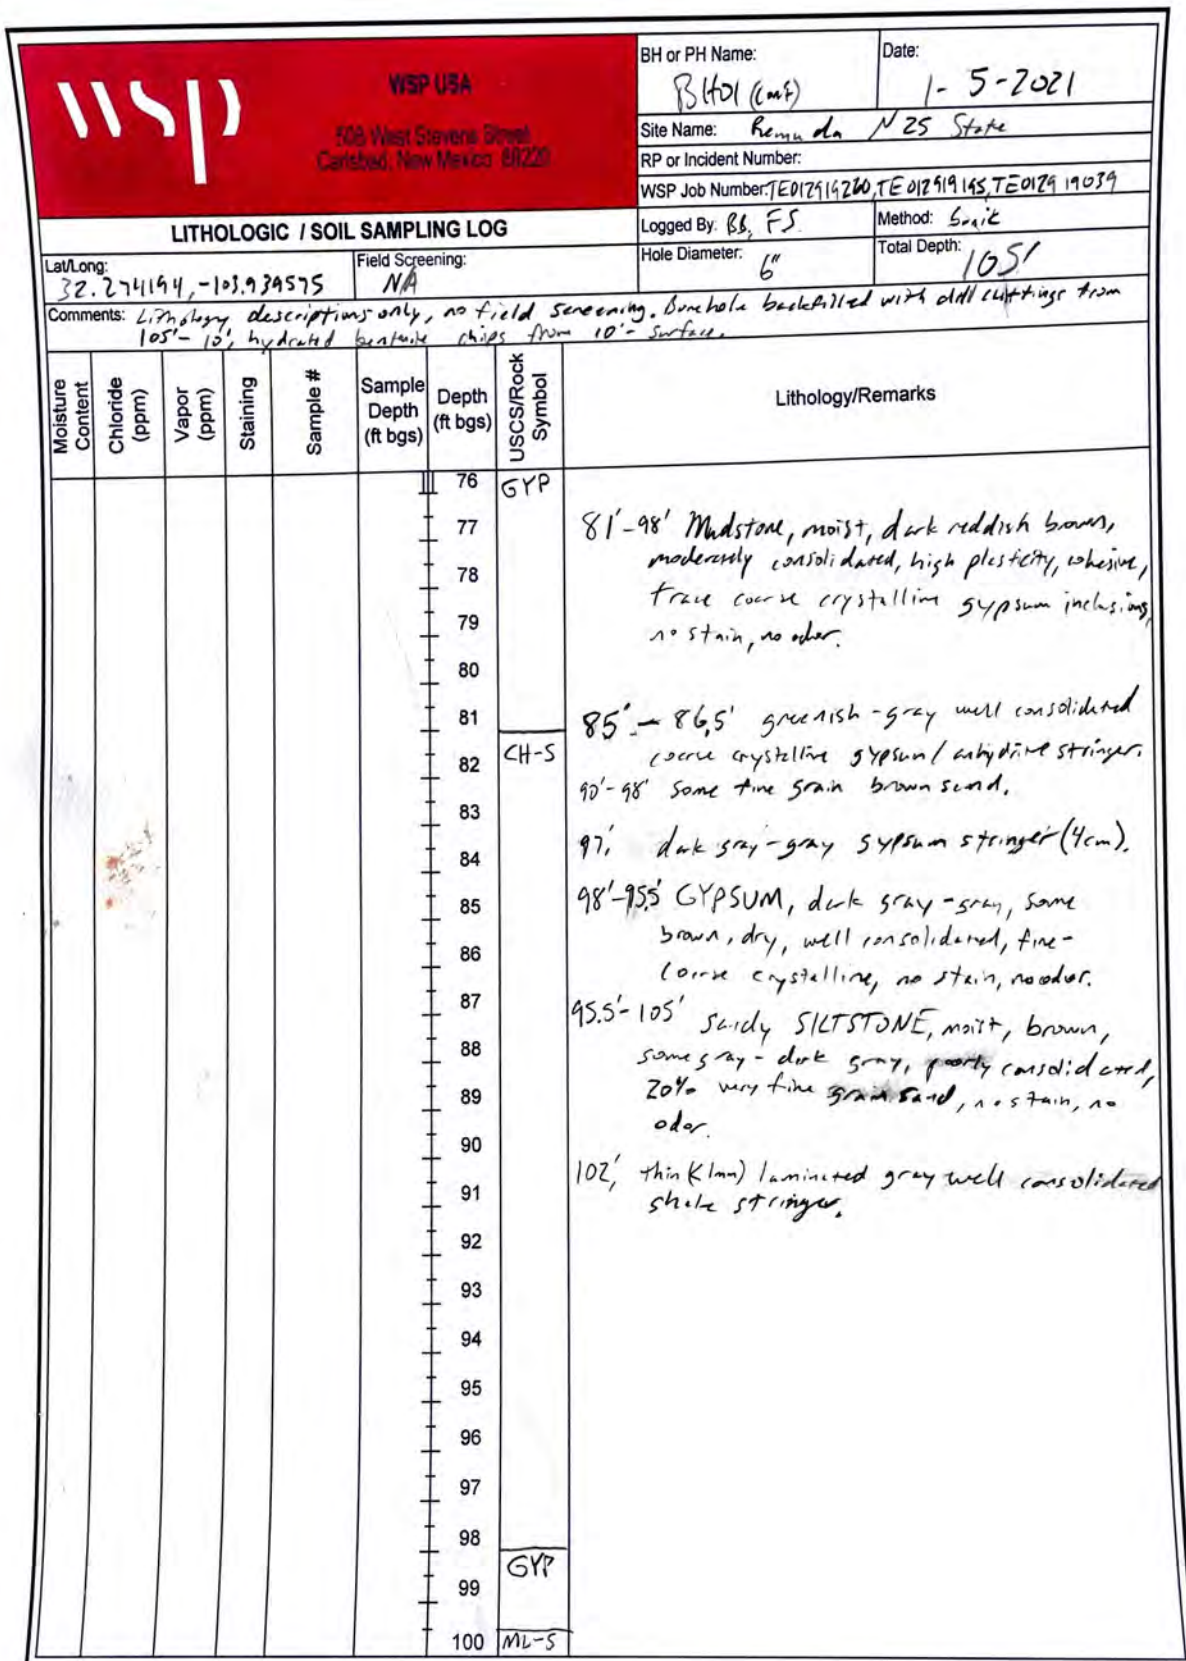 wsp
WSP USA
508 West Stevens Street
Carlsbad, New Mexico 88220
BH or PH Name:
BH01 (cont)
Date:
1-5-2021
Site Name: Remuda N 25 State
RP or Incident Number:
WSP Job Number: TE012919260, TE012919195, TE012919039
LITHOLOGIC / SOIL SAMPLING LOG
Logged By: BB, FS
Method: Sonic
Lat/Long:
32.274194, -103.939575
Field Screening:
N/A
Hole Diameter: 6"
Total Depth: 105'
Comments: Lithology descriptions only, no field screening. Borehole backfilled with drill cuttings from
105'-10', hydrated bentonite chips from 10'- surface.
Moisture Content
Chloride (ppm)
Vapor (ppm)
Staining
Sample #
Sample Depth (ft bgs)
Depth (ft bgs)
USCS/Rock Symbol
Lithology/Remarks
76 GYP
77
78
79
80
81
82 CH-S
83
84
85
86
87
88
89
90
91
92
93
94
95
96
97
98
99 GYP
100 ML-S
81'-98' Mudstone, moist, dark reddish brown,
moderately consolidated, high plasticity, cohesive,
trace coarse crystalline gypsum inclusions,
no stain, no odor.
85'-86.5' greenish-gray well consolidated
coarse crystalline gypsum/anhydrite stringer.
90'-98' some fine grain brown sand.
97', dark gray-gray gypsum stringer (4cm).
98'-95.5' GYPSUM, dark gray-gray, some
brown, dry, well consolidated, fine-
coarse crystalline, no stain, no odor.
95.5'-105' Sandy SILTSTONE, moist, brown,
some gray-dark gray, poorly consolidated,
20% very fine grain sand, no stain, no
odor.
102', thin (<1mm) laminated gray well consolidated
shale stringer.